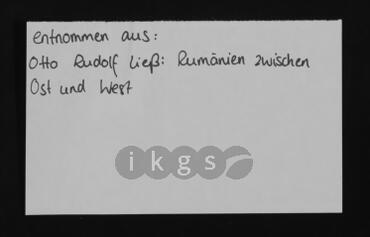 entnommen aus:
Otto Rudolf Ließ: Rumänien zwischen
Ost und West
ikgs